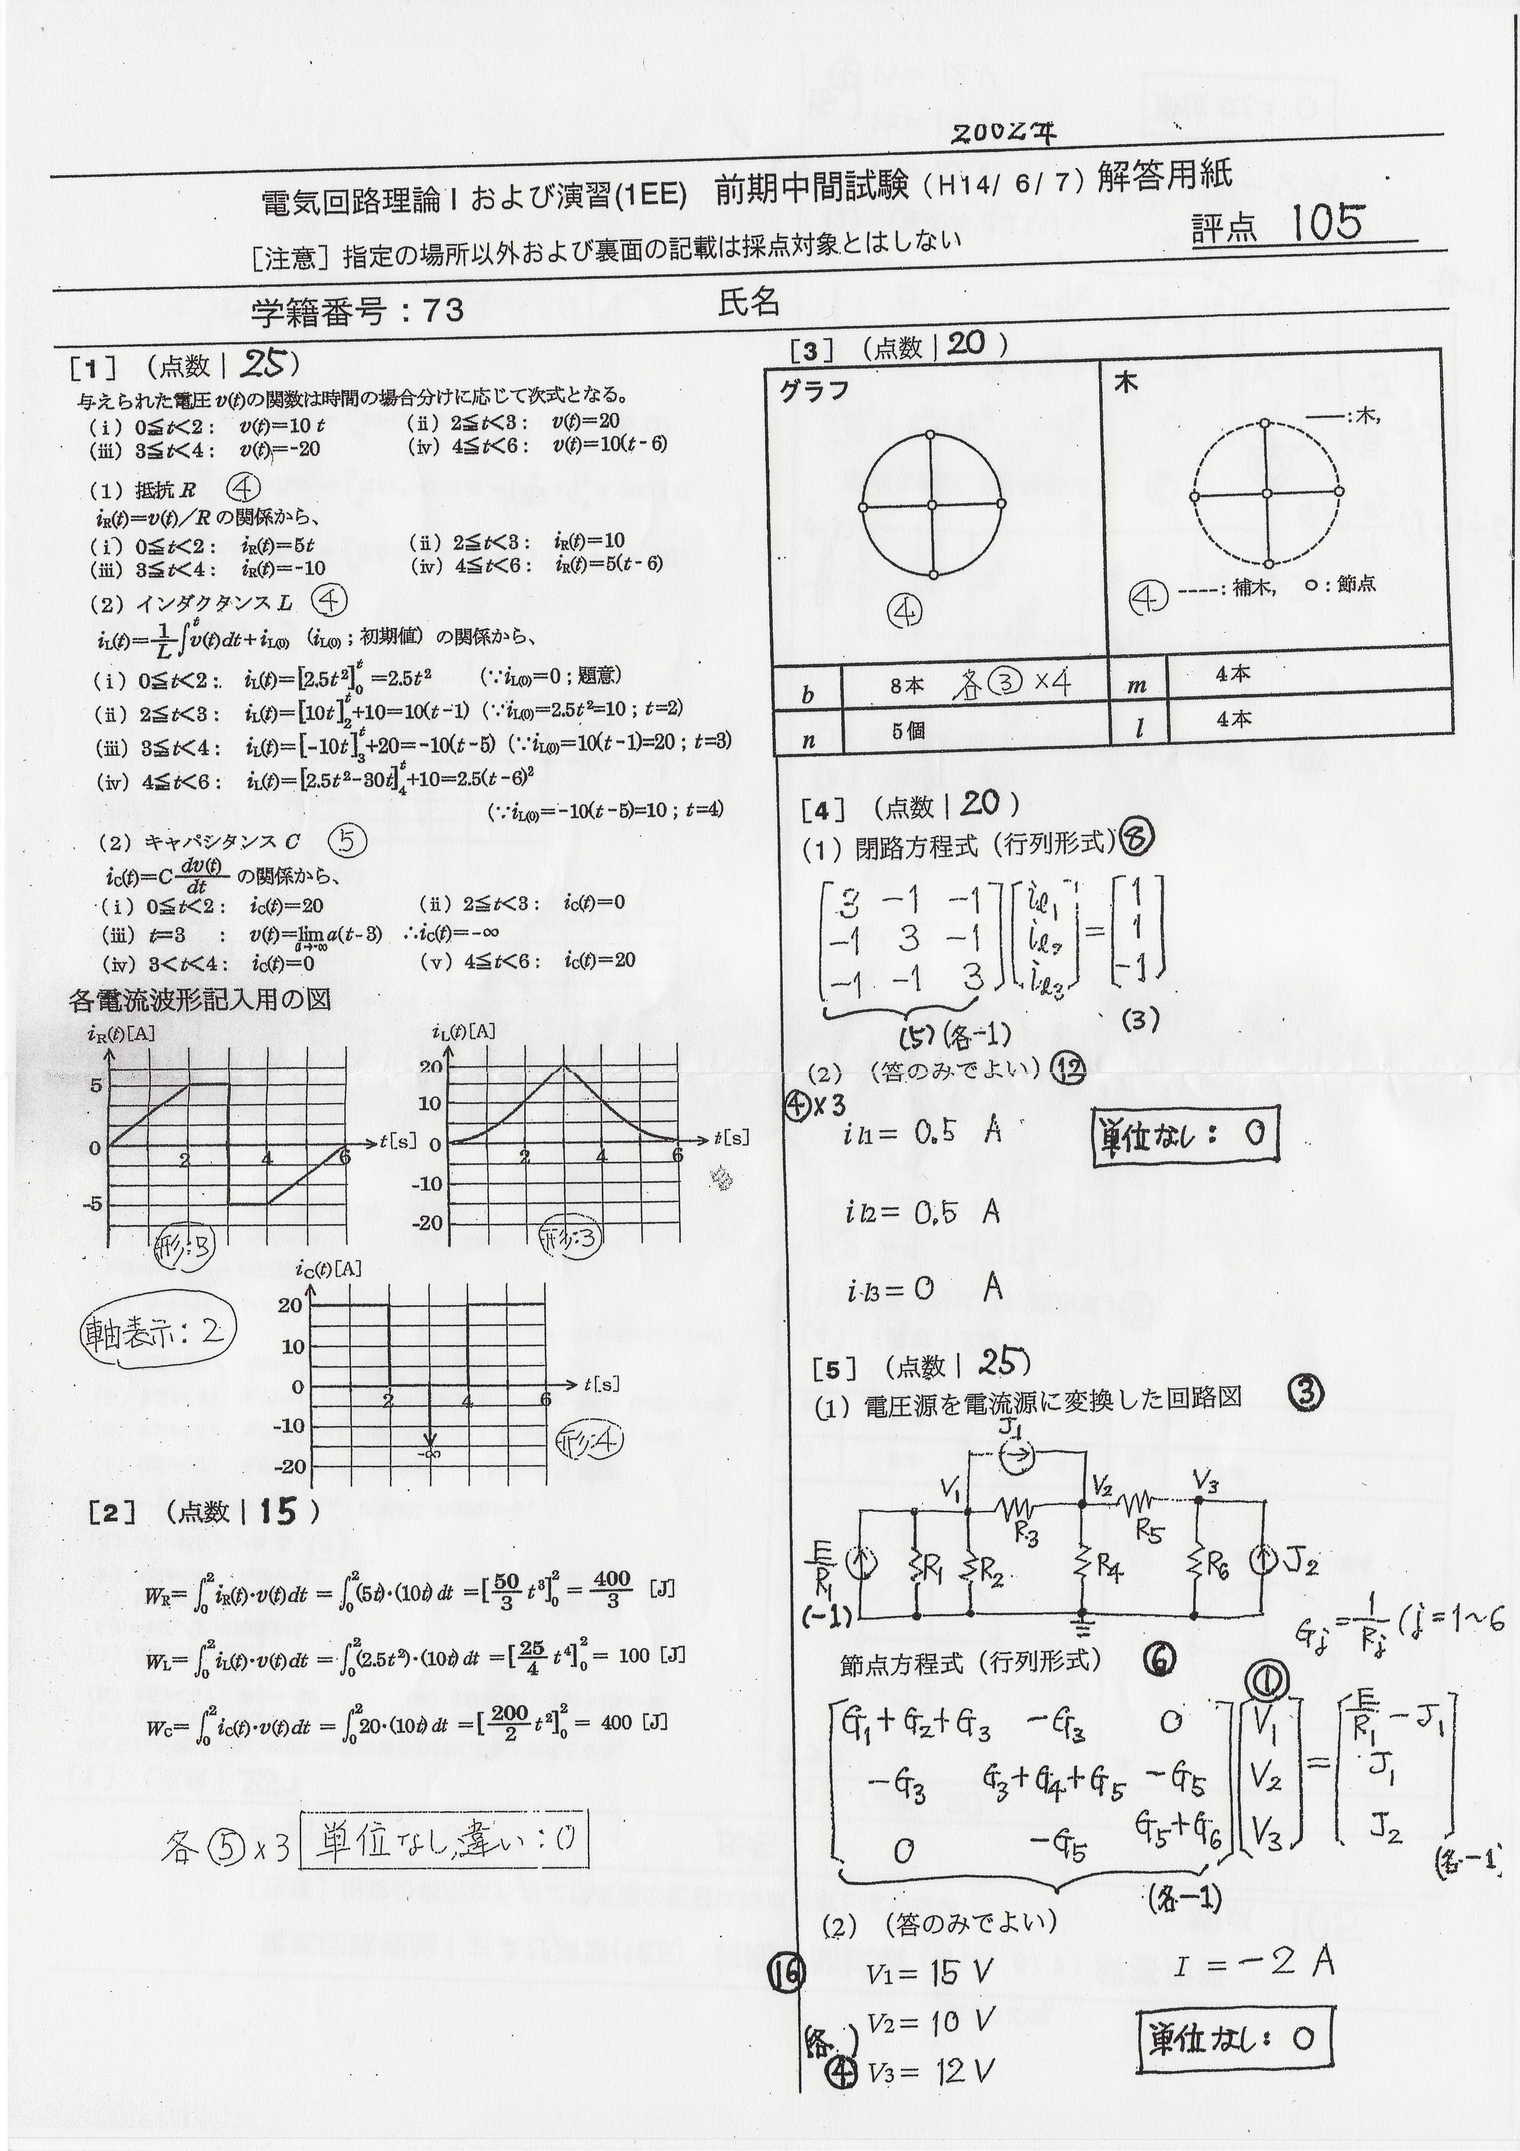 2002年
電気回路理論Ⅰおよび演習(1EE) 前期中間試験（H14/ 6/ 7）解答用紙
［注意］指定の場所以外および裏面の記載は採点対象とはしない
評点 105
学籍番号：73 氏名
［1］（点数 | 25）
与えられた電圧 v(t)の関数は時間の場合分けに応じて次式となる。
（ⅰ）0≦t<2： v(t)=10 t （ⅱ）2≦t<3： v(t)=20
（ⅲ）3≦t<4： v(t)=-20 （ⅳ）4≦t<6： v(t)=10(t-6)
（1）抵抗 R ④
iR(t)=v(t)／R の関係から、
（ⅰ）0≦t<2： iR(t)=5t （ⅱ）2≦t<3： iR(t)=10
（ⅲ）3≦t<4： iR(t)=-10 （ⅳ）4≦t<6： iR(t)=5(t-6)
（2）インダクタンス L ④
iL(t)=1/L∫^t v(t)dt+iL(0) （iL(0)；初期値）の関係から、
（ⅰ）0≦t<2： iL(t)=[2.5t²]₀^t=2.5t² （∵iL(0)=0；題意）
（ⅱ）2≦t<3： iL(t)=[10t]₂^t+10=10(t-1)（∵iL(0)=2.5t²=10；t=2）
（ⅲ）3≦t<4： iL(t)=[-10t]₃^t+20=-10(t-5)（∵iL(0)=10(t-1)=20；t=3）
（ⅳ）4≦t<6： iL(t)=[2.5t²-30t]₄^t+10=2.5(t-6)²
（∵iL(0)=-10(t-5)=10；t=4）
（2）キャパシタンス C ⑤
iC(t)=C dv(t)/dt の関係から、
（ⅰ）0≦t<2： iC(t)=20 （ⅱ）2≦t<3： iC(t)=0
（ⅲ）t=3 ： v(t)=lim a(t-3) ∴iC(t)=-∞
a→-∞
（ⅳ）3<t<4： iC(t)=0 （ⅴ）4≦t<6： iC(t)=20
各電流波形記入用の図
iR(t)[A]
5
0
-5
2 4 6
t[s]
形:3
iL(t)[A]
20
10
0
-10
-20
2 4 6
t[s]
形:3
iC(t)[A]
20
10
0
-10
-20
2 4 6
t[s]
-∞
形:4
軸表示: 2
［2］（点数 | 15）
WR=∫₀²iR(t)·v(t)dt =∫₀²(5t)·(10t)dt =[50/3 t³]₀²= 400/3 [J]
WL=∫₀²iL(t)·v(t)dt =∫₀²(2.5t²)·(10t)dt =[25/4 t⁴]₀²= 100 [J]
WC=∫₀²iC(t)·v(t)dt =∫₀²20·(10t)dt =[200/2 t²]₀²= 400 [J]
各⑤×3 単位なし,違い:0
［3］（点数 | 20）
グラフ
④
木
——：木，
④ ----：補木， ○：節点
b 8本 各③×4 m 4本
n 5個 l 4本
［4］（点数 | 20）
（1）閉路方程式（行列形式）⑧
[3 -1 -1] [il1] = [1]
[-1 3 -1] [il2] [1]
[-1 -1 3] [il3] [-1]
(5)(各-1) (3)
（2）（答のみでよい）⑫
④×3
il1= 0.5 A
単位なし: 0
il2= 0.5 A
il3= 0 A
［5］（点数 | 25）
（1）電圧源を電流源に変換した回路図 ③
J1
V1 V2 V3
R3 R5
E/R1 R1 R2 R4 R6 J2
(-1)
Gj=1/Rj (j=1~6
節点方程式（行列形式） ⑥
①
[G1+G2+G3 -G3 0] [V1] = [E/R1-J1]
[-G3 G3+G4+G5 -G5] [V2] [J1]
[0 -G5 G5+G6] [V3] [J2]
(各-1)
(各-1)
（2）（答のみでよい）
⑯
V1= 15 V I =-2 A
V2= 10 V
単位なし: 0
(各 )
④ V3= 12 V